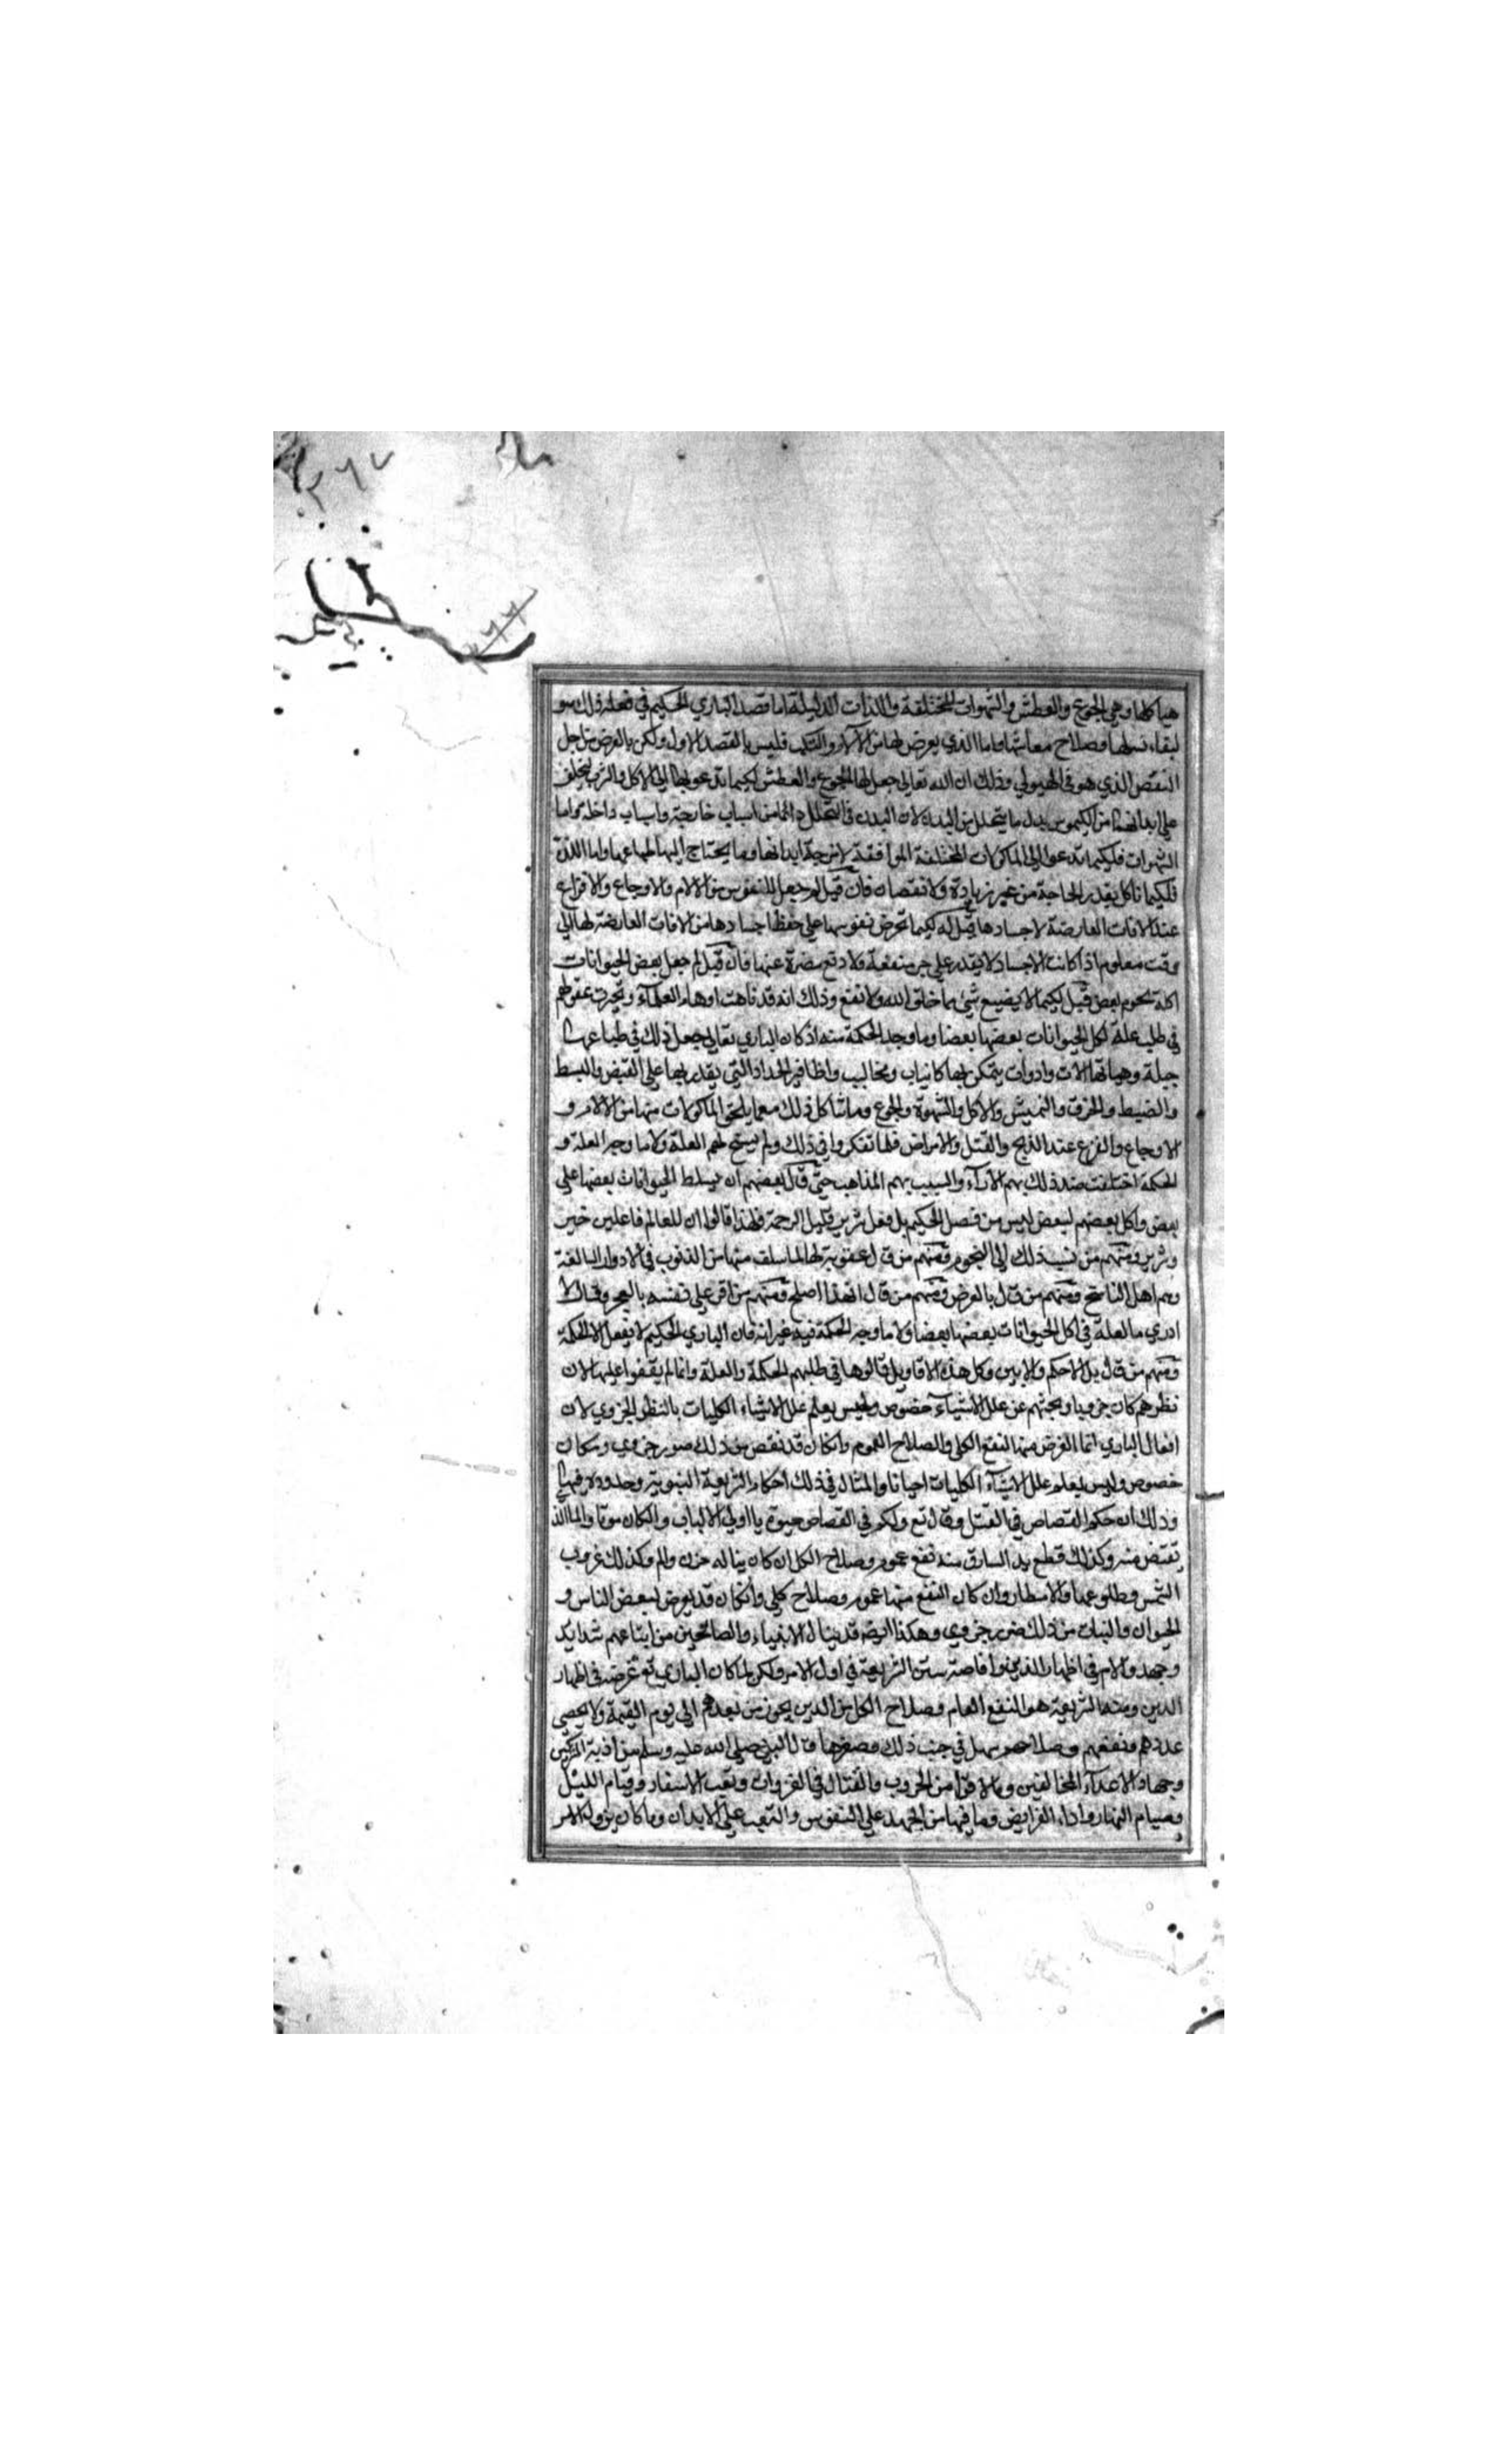 ٢٦٧
٢٦٦
هياكلها وهي الجوع والعطش والشهوات المختلفة واللذات الدليلة اما قصد الباري الحكيم في فعله ذلك هو
لبقاء نسلها وصلاح معاشها واما الذي يعرض لها من الآلام والتلف فليس بالقصد الاول ولكن بالعرض من اجل
النقص الذي هو في الهيولي وذلك ان الله تعالى جعل لها الجوع والعطش لكيما تدعوها الي الاكل والشرب ليخلف
علي ابدانها من الكيموس بدل ما يتحلل من البدن لان البدن في التحلل دائما من اسباب خارجة واسباب داخلة واما
الشهوات فلكيما تدعوا الي الماكولات المختلفة الموافقة لامزجة ابدانها وما يحتاج اليها طباعها واما اللذة
فلكيما تاكل بقدر الحاجة من غير زيادة ولا نقصان فان قيل لم جعل للنفوس من الالام والاوجاع والافزاع
عند الافات العارضة لاجسادها قيل له لكيما تحرض نفوسها علي حفظ اجسادها من الافات العارضة لها الي
وقت معلوم اذا كانت الاجساد لا يقدر علي جر منفعة ولا دفع مضرة عنها فان قيل لم جعل بعض الحيوانات
اكلة لحوم بعض قيل لكيما لا يضيع شئ مما خلق الله ولا نفع وذلك انه قد تاهت اوهام العلماء وتحيرت عقولهم
في طلب علة اكل الحيوانات بعضها بعضا وما وجد الحكمة منه اذ كان الباري تعالى جعل ذلك في طباعها
جبلة وهيا لها الات وادوات يتمكن بها كانياب ومخاليب واظافير الحداد التي يقدر بها علي القبض والبسط
والضبط والخرق والنهيش والاكل والشهوة والجوع وما شاكل ذلك مع ما يلحق الماكولات منها من الالام و
الاوجاع والفزع عند الذبح والقتل والامراض فلما تفكروا في ذلك ولم يسنح لهم العلة ولا ما وجه العلة و
الحكمة اختلفت عند ذلك بهم الآراء والسبب بهم المذاهب حتي قال بعضهم ان يسلط الحيوانات بعضها علي
بعض واكل بعضهم لبعض ليس من فصل الحكيم بل فعل شرير قليل الرحمة فلهذا قالوا ان للعالم فاعلين خير
وشرير ومنهم من نسب ذلك الي النجوم ومنهم من قال عقوبة لها لما سلف منها من الذنوب في الادوار السالفة
وهم اهل التناسخ ومنهم من قال بالعرض ومنهم من قال ان هذا اصلح ومنهم من اقر علي نفسه بالعجز وقال لا
ادري ما العلة في اكل الحيوانات بعضها بعضا ولا ما وجه الحكمة فيه غير انه قال الباري الحكيم لا يفعل الا الحكمة
ومنهم من قال بل لاحكم والابين وكل هذه الاقاويل قالوها في طلبهم الحكمة والعلة وانما لم يقفوا عليها لان
نظرهم كان جزويا وبحثهم عن علل الاشياء خصوص وليس يعلم علل الاشياء الكليات بالنظر الجزوي لان
افعال الباري انما الغرض منها النفع الكلي والصلاح العموم وان كان قد نقص من ذلك صور جزوي ومكان
خصوص وليس يعلم علل الاشياء الكليات احيانا والمثال في ذلك احكام الشريعة النبوية وحدودها فيها
وذلك ان حكم القصاص في القتل وقال تع ولكم في القصاص حيوة يا اولي الالباب وان كان موتا والما الذي
تقتص منه وكذلك قطع يد السارق منه نفع عموم وصلاح الكل ان كان يناله حزن والم وكذلك غروب
الشمس وطلوعها والامطار وان كان النفع منها عموم وصلاح كلي وان كان قد يعرض لبعض الناس و
الحيوان والنبات من ذلك ضرر جزوي وهكذا ايضه قد ينال الانبياء والصالحين من اتباعهم شدايد
وجهد والام في اظهار الدين وافاضة سنن الشريعة في اول الامر ولكن لما كان الباري تع غرضه في اظهار
الدين وسنة الشريعة هو النفع العام وصلاح الكل من الذين يجون من بعدهم الي يوم القيمة ولا يحصي
عددهم ومنفعهم وصلاحهم سهل في جنب ذلك وصغر ما نال النبي صلي الله عليه وسلم من اذية المشركين
وجهاد الاعداء المخالفين وما لاقا من الحروب والقتال في الغزوات وتعب الاسفار وقيام الليل
وصيام النهار واداء الفرايض وما فيها من الجهد علي النفوس والتعب علي الابدان وما كان يزول الامر